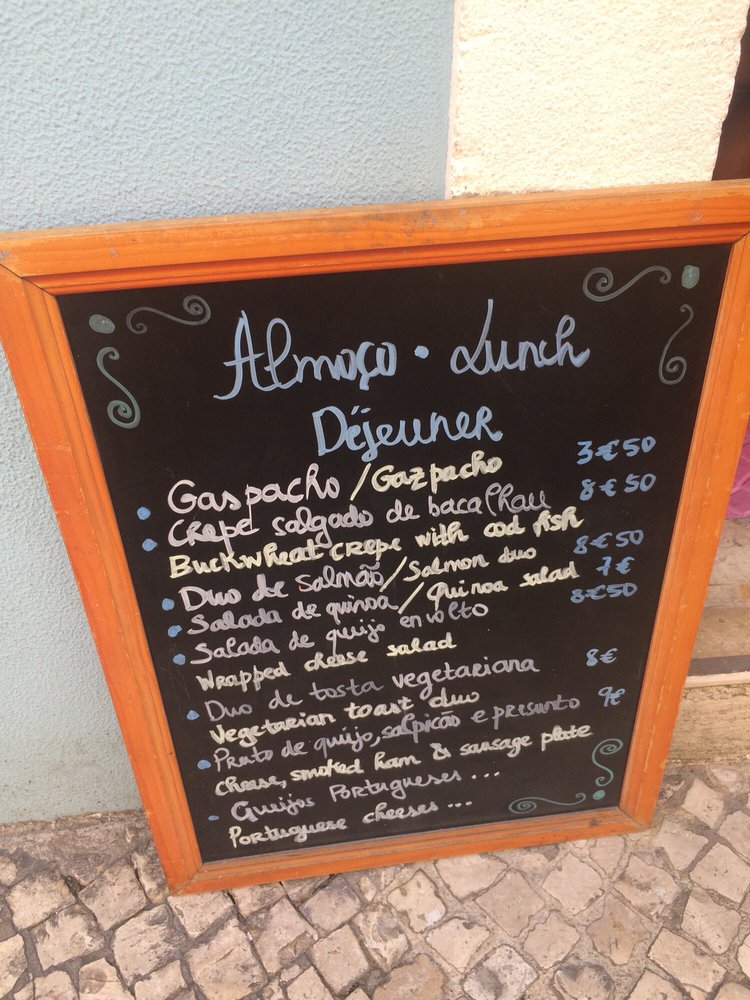 Almoço · Lunch
Déjeuner
• Gaspacho / Gazpacho 3€50
• Crepe salgado de bacalhau 8€50
Buckwheat crepe with cod fish
• Duo de Salmão / Salmon duo 8€50
• Salada de quinoa / Quinoa salad 7€
• Salada de queijo envolto 8€50
Wrapped cheese salad
• Duo de tosta vegetariana 8€
Vegetarian toast duo
• Prato de queijo, salpicão e presunto 9€
cheese, smoked ham & sausage plate
• Queijos Portugueses ...
Portuguese cheeses ...